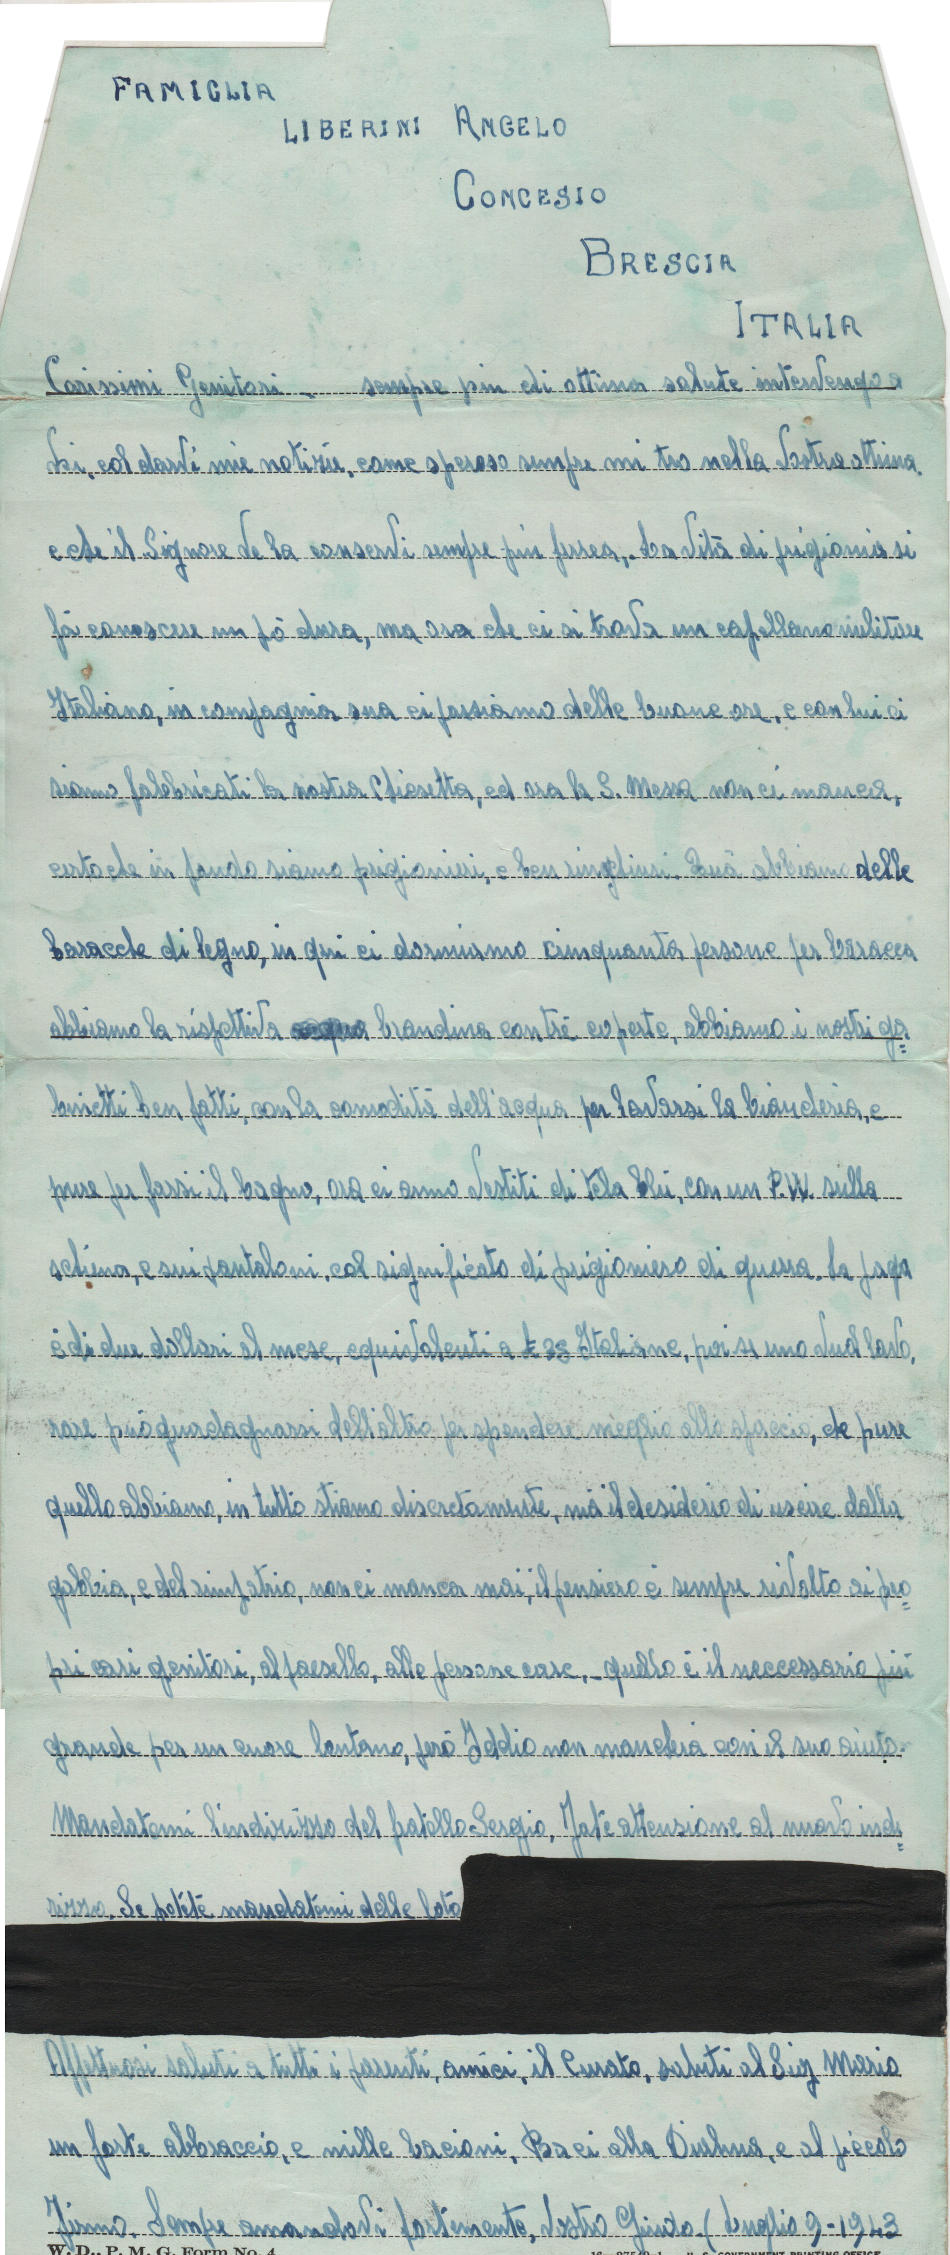 FAMIGLIA
LIBERINI ANGELO
CONCESIO
BRESCIA
ITALIA
Carissimi Genitori - sempre piu di ottima salute intervengo a
Vi, col darvi mie notizie, come speroso sempre mi tro nella Vostra ottima
e che il Signore Ve la conservi sempre piu ferrea,. La vità di prigionia si
fà conoscere un pò dura, ma ora che ci si trova un capellano militare
Italiano, in compagnia sua ci passiamo delle buone ore, e con lui ci
siamo fabbricati la nostra Chiesetta, ed ora la S. Messa non ci manca,
certo che in fondo siamo prigionieri, e ben Quà abbiamo delle
baracche di legno, in qui ci dormiamo cinquanta persone per baracca
abbiamo la rispettiva brandina con trè coperte, abbiamo i nostri ga=
binetti ben fatti, con la comodità dell'acqua per lavarsi la biancheria, e
pure per farsi il bagno, ora ci anno vestiti di tela blu, con un P.W. sulla
schiena, e sui pantaloni, col significato di prigioniero di guerra. La paga
è di due dollari al mese, equivalenti a £ 38 Italiane, poi se uno vual lavo,
rare può guadagnarsi dell'altro per spendere meglio allo spaccio, che pure
quello abbiamo, in tutto stiamo discretamente, mà il desiderio di uscire dalla
gabbia, e del rimpatrio, non ci manca mai, il pensiero è sempre rivolto ai pro=
pri cari genitori, al paesello, alle persone care, - quello è il neccessario più
grande per un cuore lontano, però Iddio non mancherà con il suo aiuto.
Mandatemi l'indirizzo del fratello Sergio. Fatè attensione al nuovo indi=
rizzo. Se potetè mandatemi delle foto
Affettuosi saluti a tutti i parenti, amici, il Curato, saluti al Sig Mario
un forte abbraccio, e mille bacioni, Baci alla e al piccolo
Sempre amandovi fortemente, Vostro Guido. (Luglio 9-1943
W. D., P. M. G. Form No. 4
U. S. GOVERNMENT PRINTING OFFICE